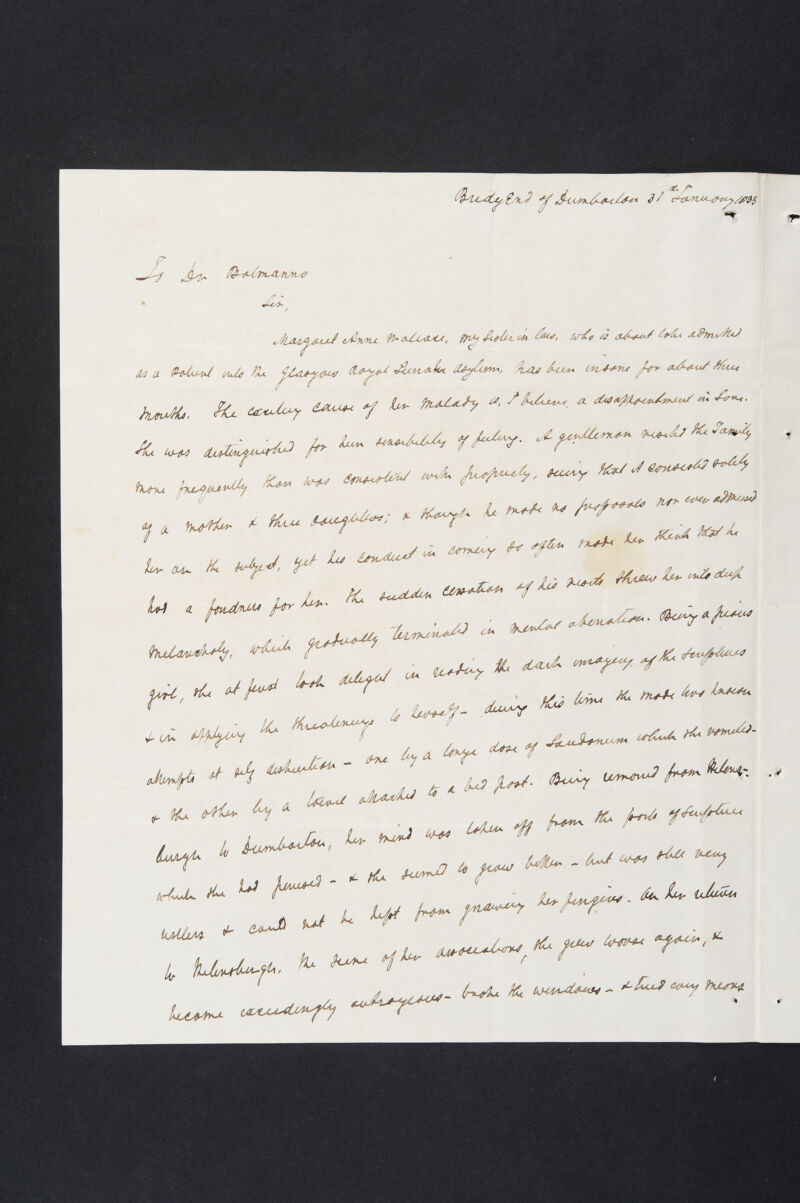 Bridg End of Dumbarton 31st January 1835
To Dr Balmanno
Sir,
Margaret Anne my Sister in law, who is about to be admitted
as a patient into the Glasgow Royal Lunatic Asylum, has been insane for about three
months. The exciting cause of her malady is, I believe, a disappointment in Love.
She was distinguished for keen sensibility of feeling. A gentleman visited the Family
more frequently than was consistent with propriety, seeing that it consisted solely
of a mother & three daughters; & though he made no proposals nor ever addressed
her on the subject, yet his conduct in coming so often made her think that he
had a fondness for her. The sudden cessation of his visits threw her into deep
melancholy, which gradually terminated in mental alienation. Being a pious
girl, she at first took delight in reading the dark imagery of the Scriptures
& in applying the threatenings to herself – during this time she made two known
attempts at self destruction – one by a large dose of Laudanum which she vomited –
& the other by a towel attached to a bed post. Being removed from Helens-
burgh to Dumbarton, her mind was taken off from the parts of Scripture
which she had perused – & she seemed to grow better – but was still very
restless & could not be kept from gnawing her fingers. On her return
to Helensburgh, the scene of her associations, she grew worse again, &
became exceedingly outrageous – broke the windows – & tried every means